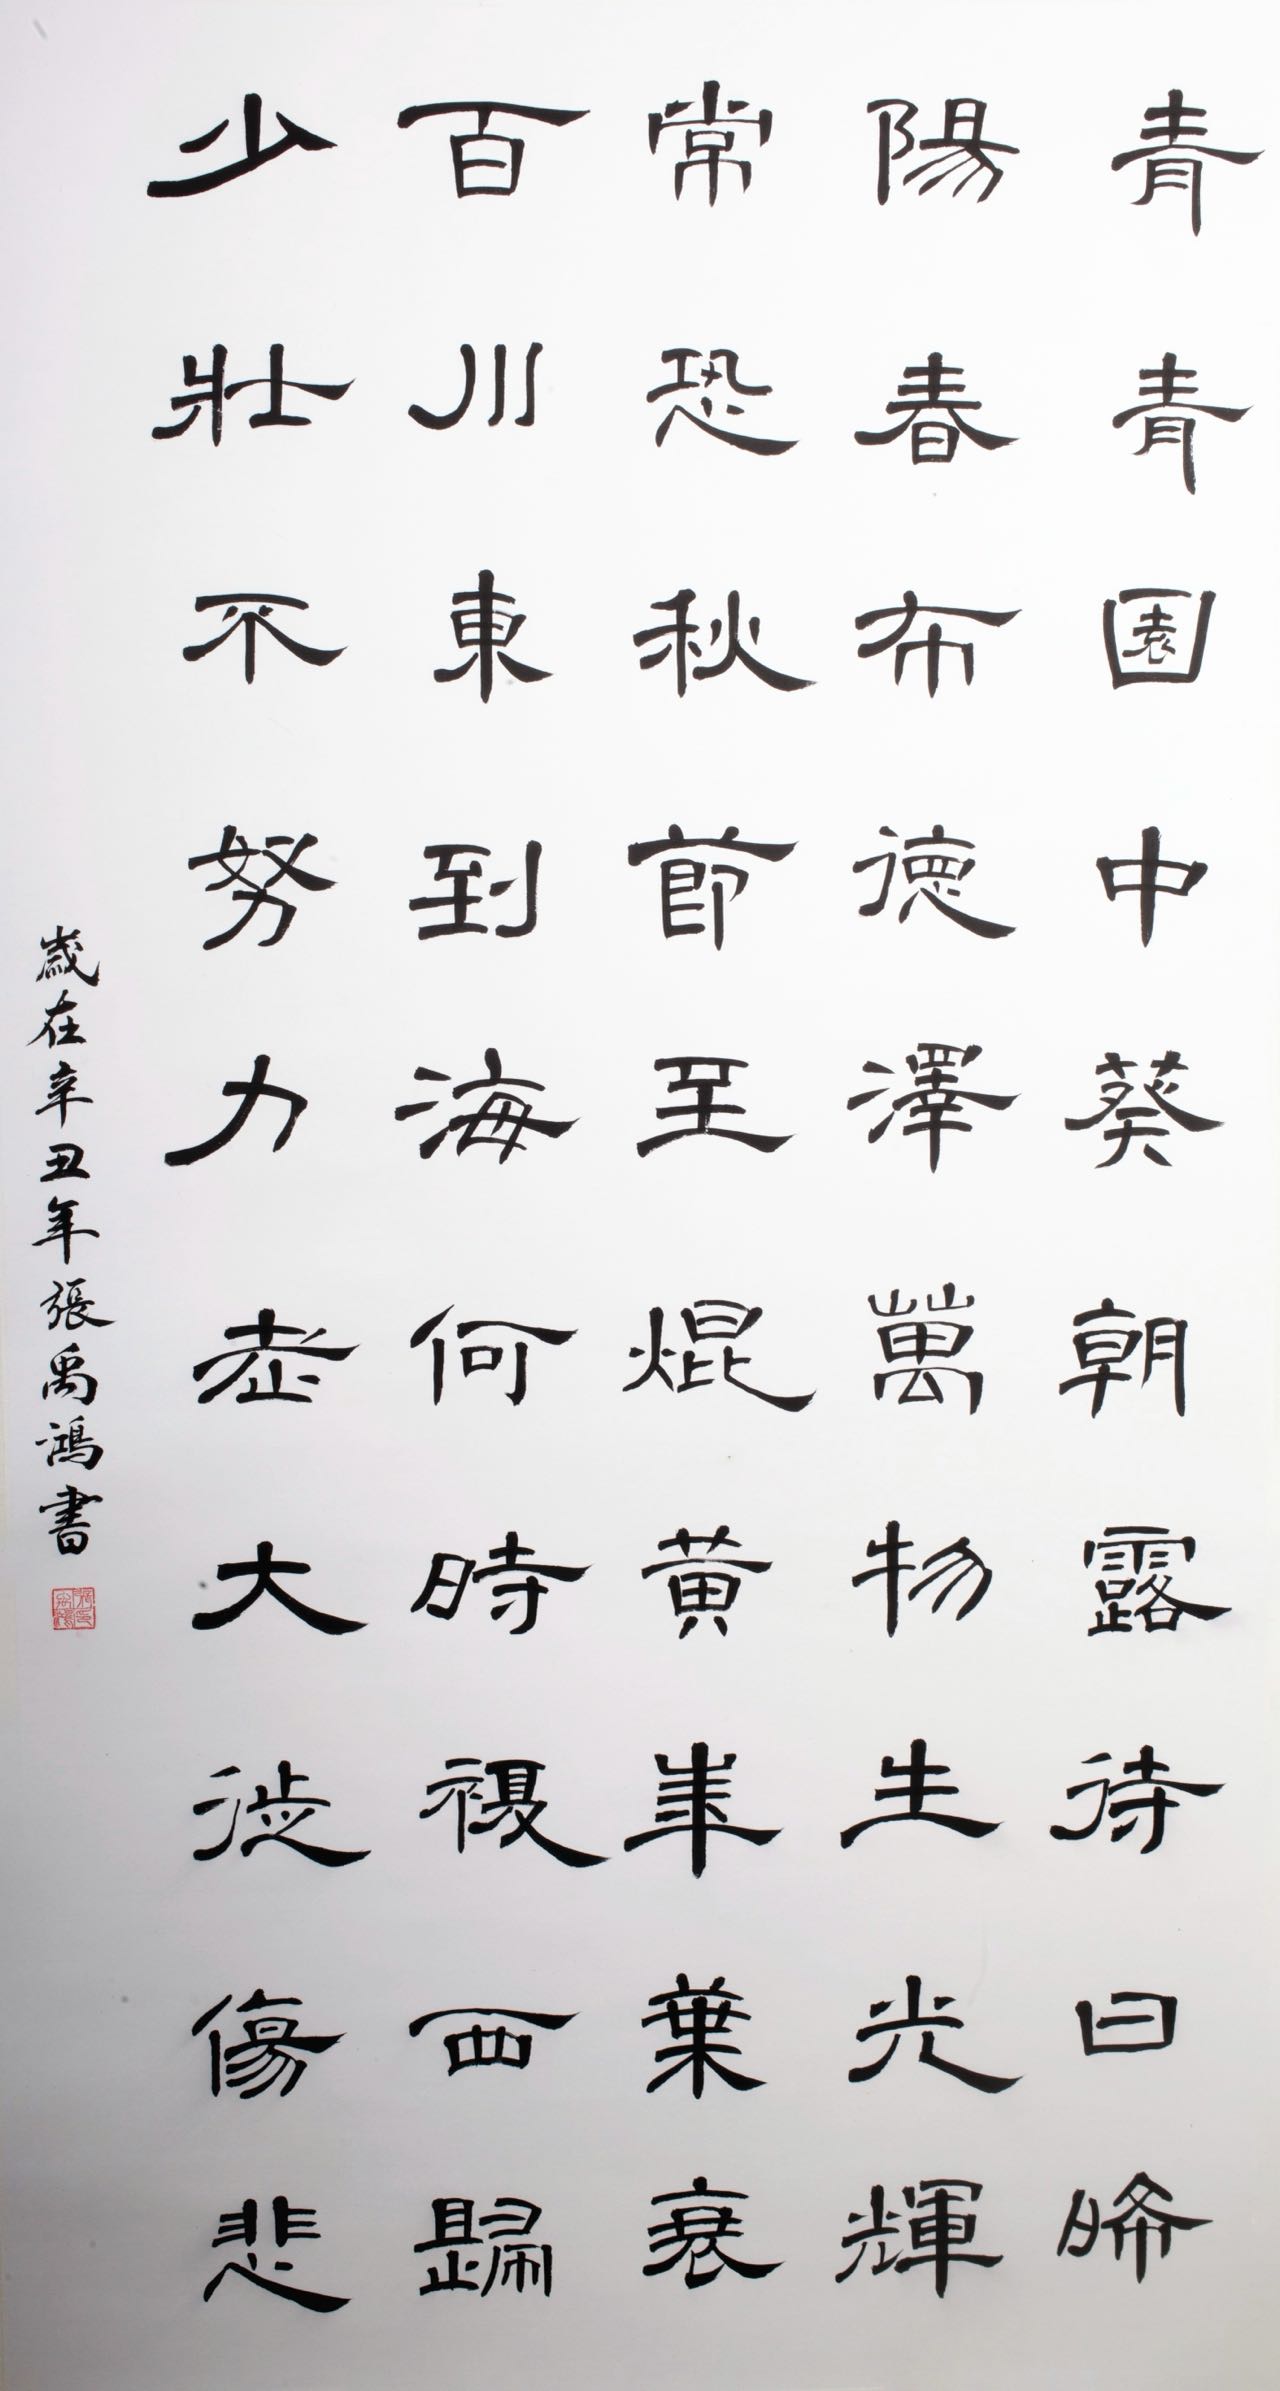 青青園中葵朝露待日晞
陽春布德澤萬物生光輝
常恐秋節至焜黃華葉衰
百川東到海何時復西歸
少壯不努力老大徒傷悲
歲在辛丑年張禹鴻書